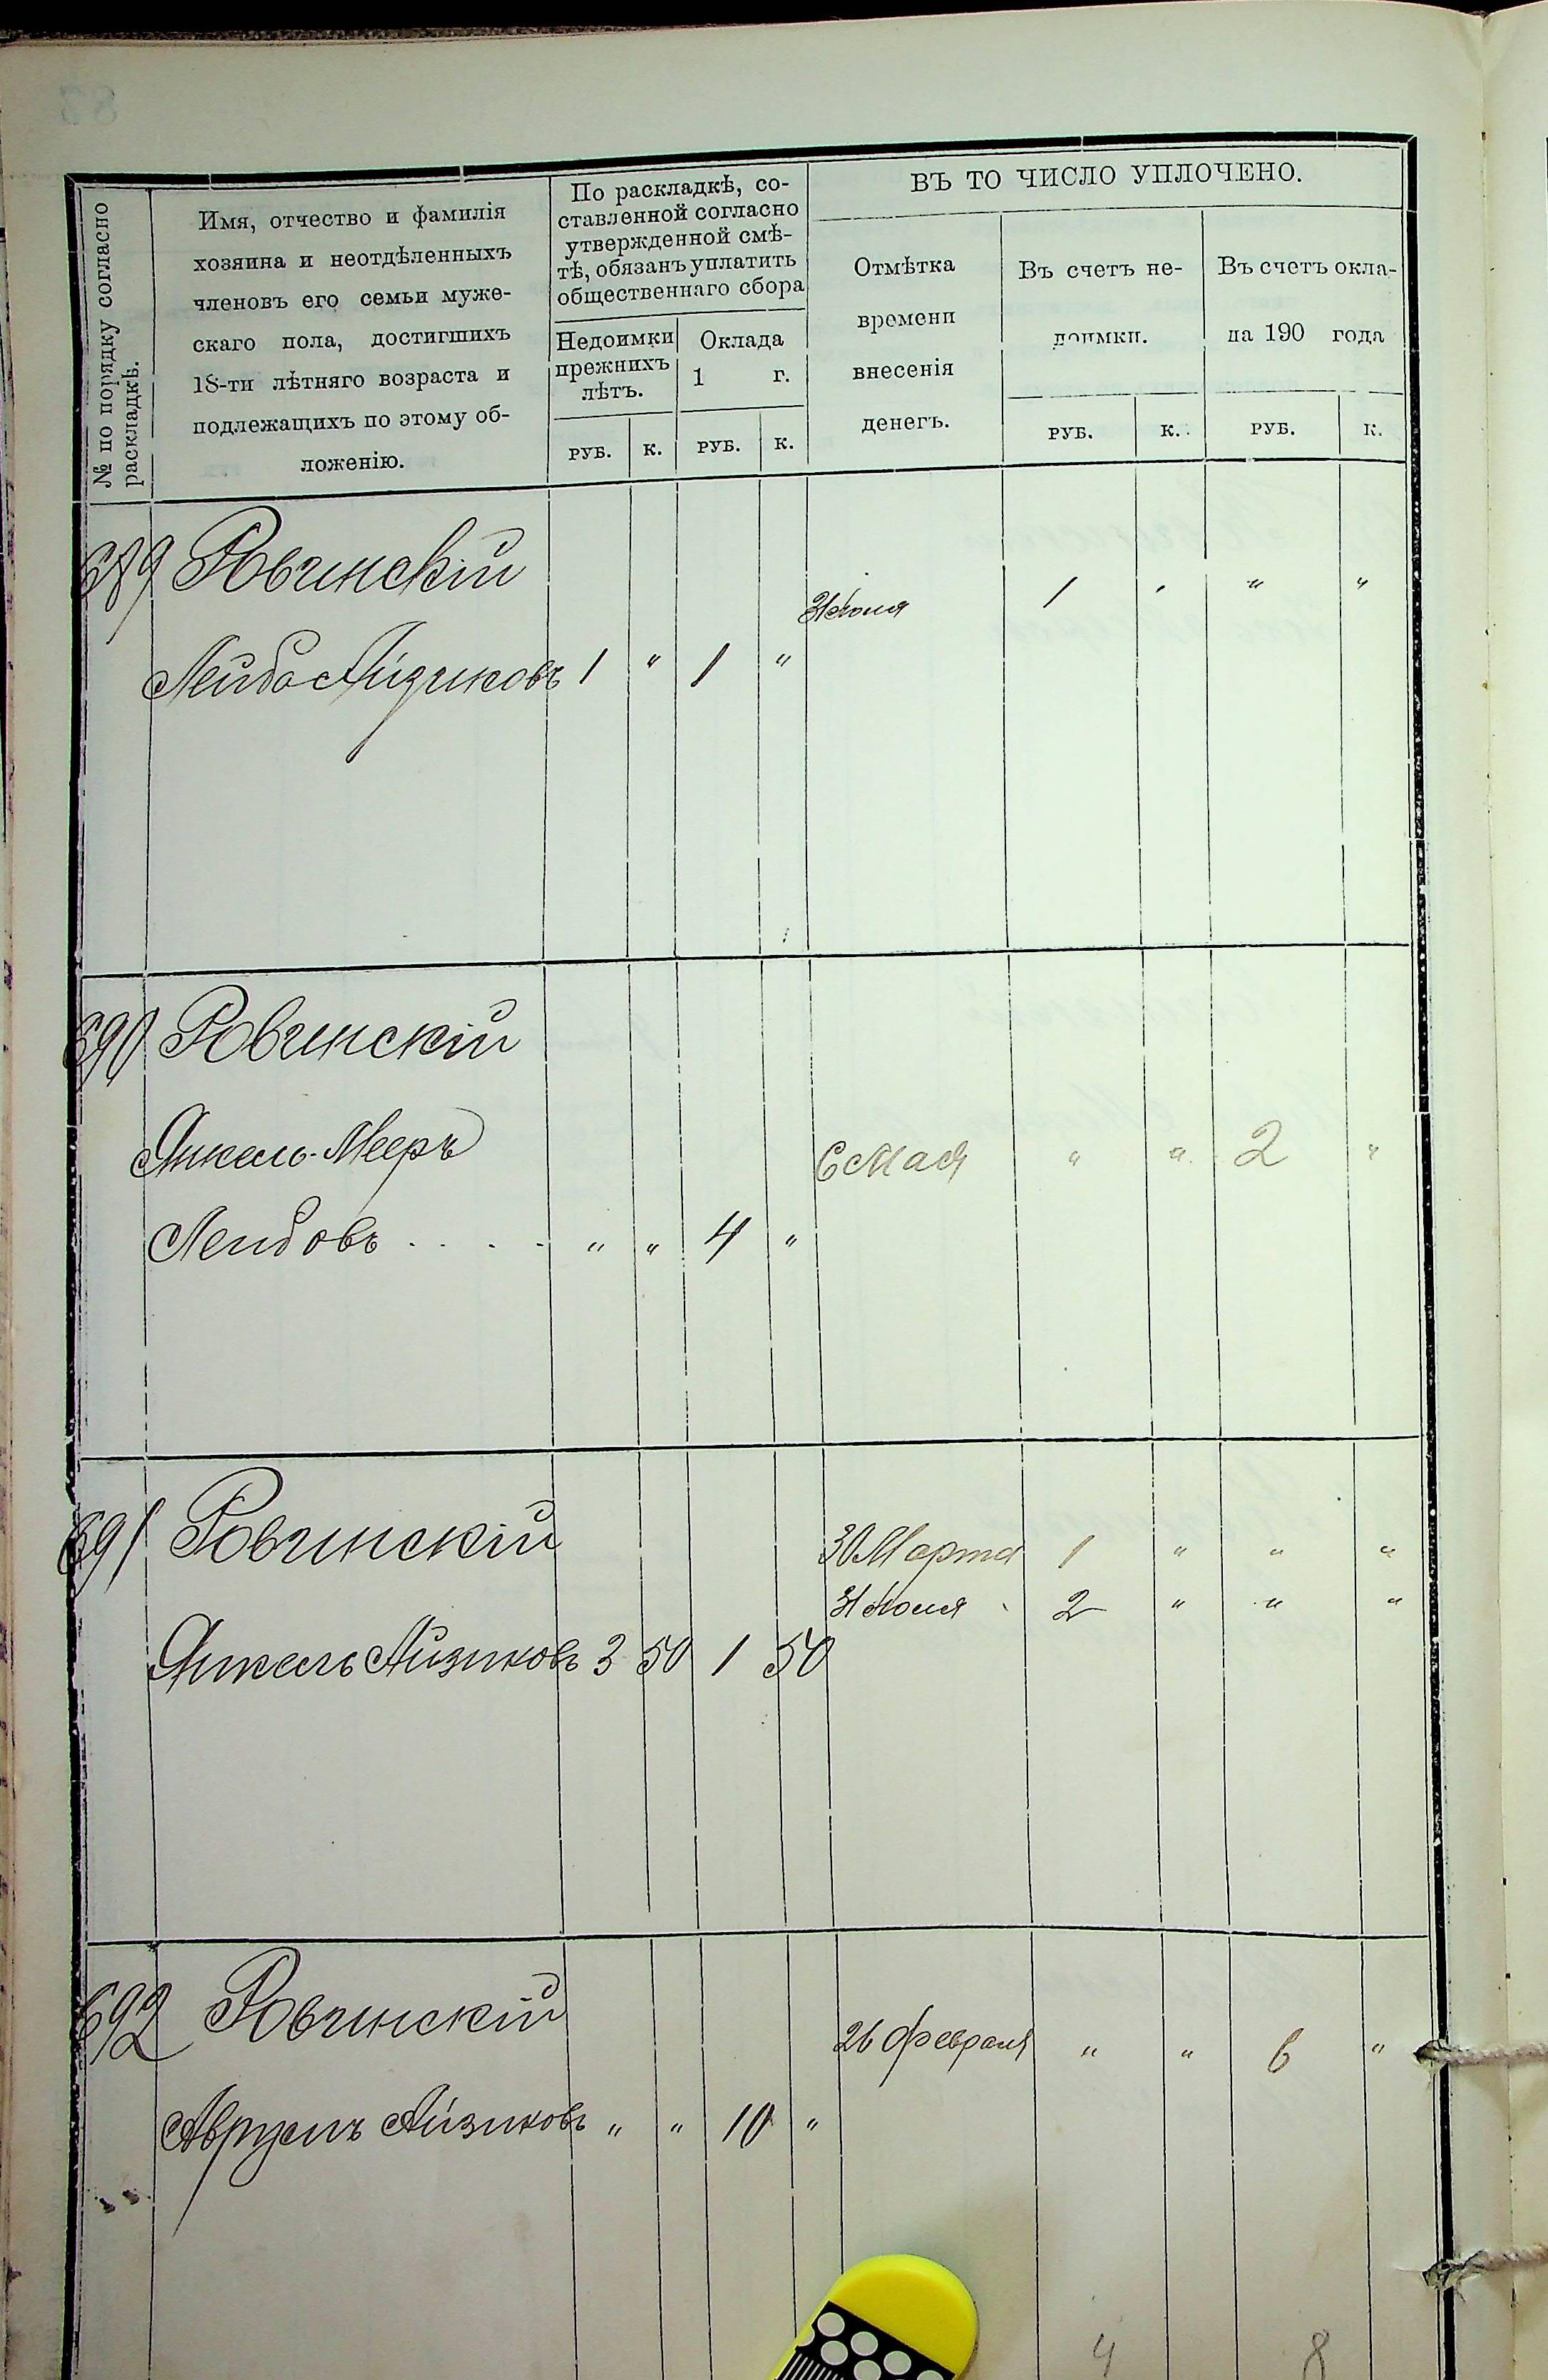 № по порядку согласно
раскладкѣ.
Имя, отчество и фамилія
хозяина и неотдѣленныхъ
членовъ его семьи муже-
скаго пола, достигшихъ
18-ти лѣтняго возраста и
подлежащихъ по этому об-
ложенію.
По раскладкѣ, со-
ставленной согласно
утвержденной смѣ-
тѣ, обязанъ уплатить
общественнаго сбора
Недоимки
прежнихъ
лѣтъ.
Оклада
1 г.
РУБ. К. РУБ. К.
ВЪ ТО ЧИСЛО УПЛОЧЕНО.
Отмѣтка
времени
внесенія
денегъ.
Въ счетъ не-
доимки.
Въ счетъ окла-
да 190 года
РУБ. К. РУБ. К.
689 Ровинскій
Іюня 1 " " "
Лейба Айзиковъ 1 " 1 "
690 Ровинскій
Янкель-Мееръ
6 Мая " " 2 "
Лейбовъ . . . . " " 4 "
691 Ровинскій
30 Марта 1 " " "
Іюня 2 " " "
Янкель Айзиковъ 3 50 1 50
692 Ровинскій
26 Февраля " " 6 "
Аврумъ Айзиковъ " " 10 "
4 8